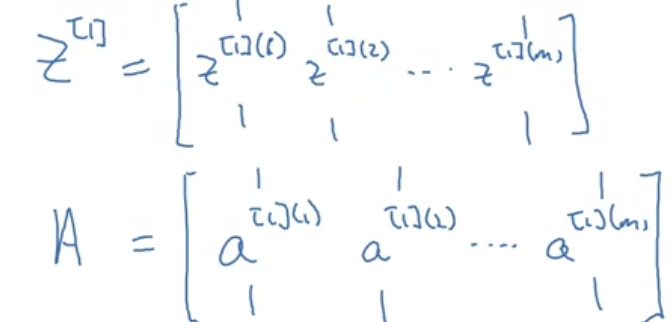 Z^[1] = [ z^[1](1) z^[1](2) ... z^[1](m) ]
A = [ a^[1](1) a^[1](2) .... a^[1](m) ]